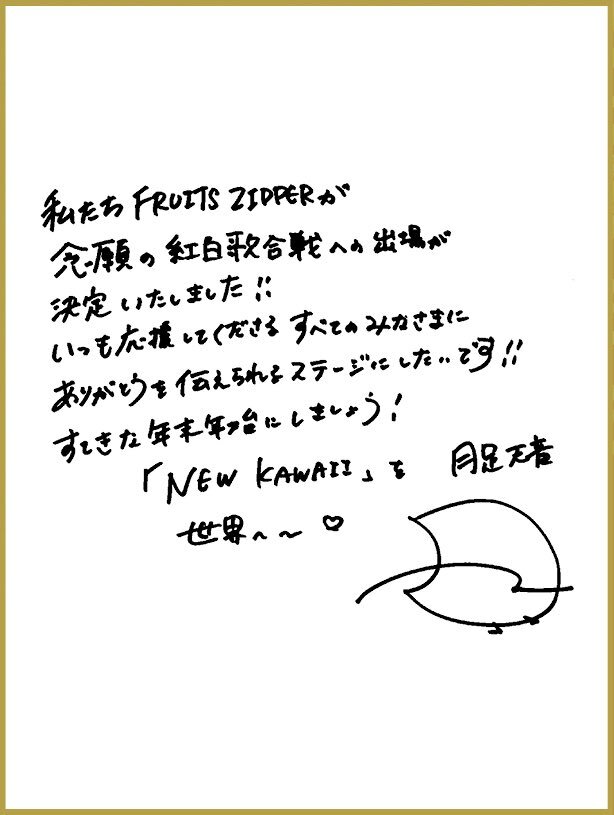 私たち FRUITS ZIPPERが
念願の紅白歌合戦への出場が
決定いたしました!!
いつも応援してくださる すべてのみなさまに
ありがとうを伝えられるステージにしたいです!!
すてきな年末年始にしましょう!
「NEW KAWAII」を
世界へ〜♡
月足天音